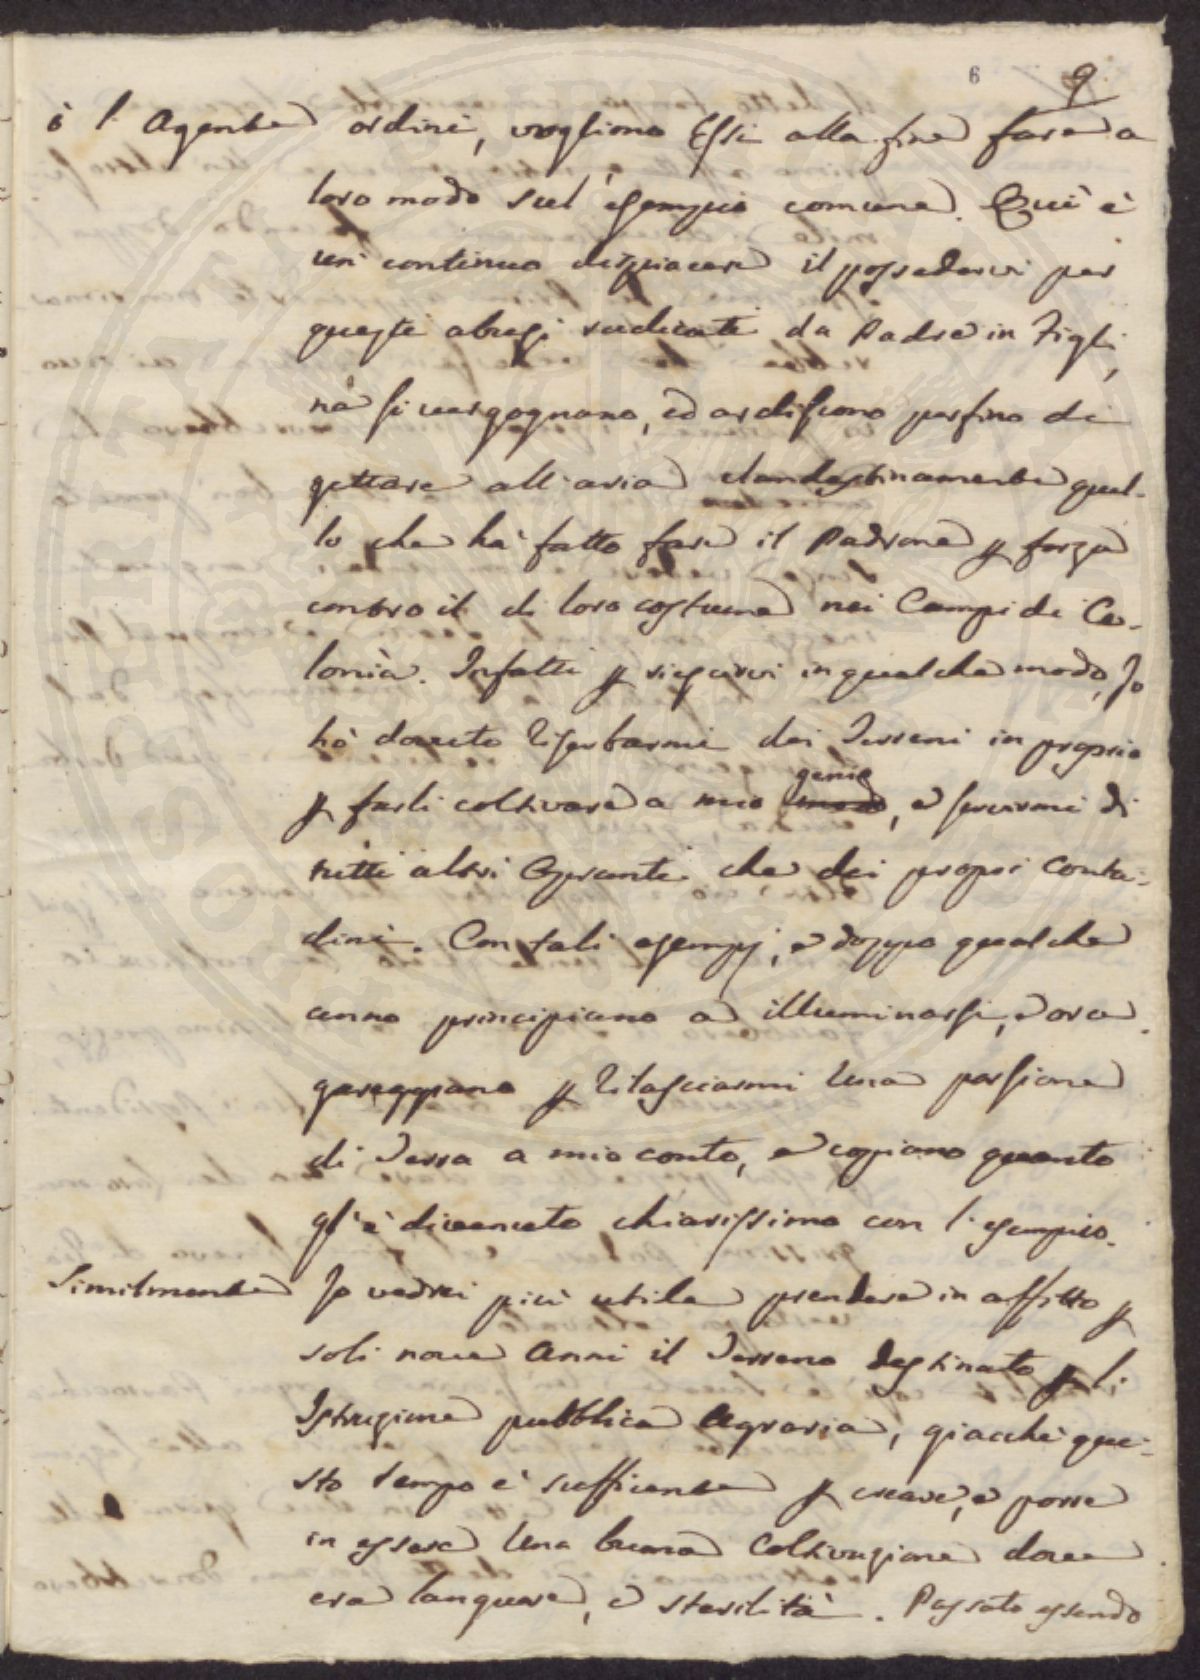 6 9
ò l'Agente ordini, vogliono Essi alla fine fare a
loro modo sul' esempio comune. Qui è
un continuo dispiacere il possedervi per
questi abusi radicati da Padre in Figli,
nè si vergognano, ed ardiscono perfino di
gettare all'aria clandestinamente quel-
lo che hà fatto fare il Padrone p forza
contro il di loro costume nei Campi di Co-
lonia. Infatti p riescirvi in qualche modo, Jo
hò dovuto riserbarmi dei Terreni in proprio
p farli coltivare a mio modo genio, e servirmi di
tutti altri Operanti che dei propri Conta-
dini. Con tali esempj, e doppo qualche
anno principiano ad illuminarsi, ed ora
gareggiano p rilasciarmi una porzione
di Terra a mio conto, e copiano quanto
gl'è divenuto chiarissimo con l'esempio.
Similmente Jo vedrei più utile prendere in affitto p
soli nove Anni il Terreno destinato p l'
Istruzione pubblica Agraria, giacchè que-
sto tempo è sufficiente p creare, e porre
in essere una buona Coltivazione dove
era languore, e sterilità. Passato essendo